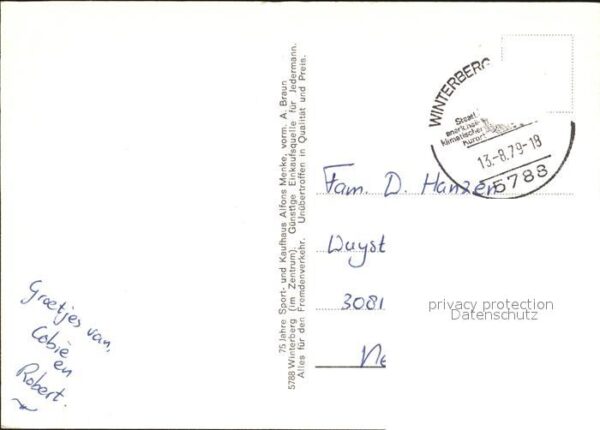 Groetjes van,
Cobie en
Robert.
75 Jahre Sport- und Kaufhaus Alfons Menke, vorm. A. Braun
5788 Winterberg (im Zentrum). Günstige Einkaufsquelle für Jedermann.
Alles für den Fremdenverkehr. Unübertroffen in Qualität und Preis.
WINTERBERG
Staatl.
anerkannter
klimatischer
Kurort
13.-8.79-18
5788
Fam. D. Hanzen
Wuyst
3081
Ne
privacy protection
Datenschutz